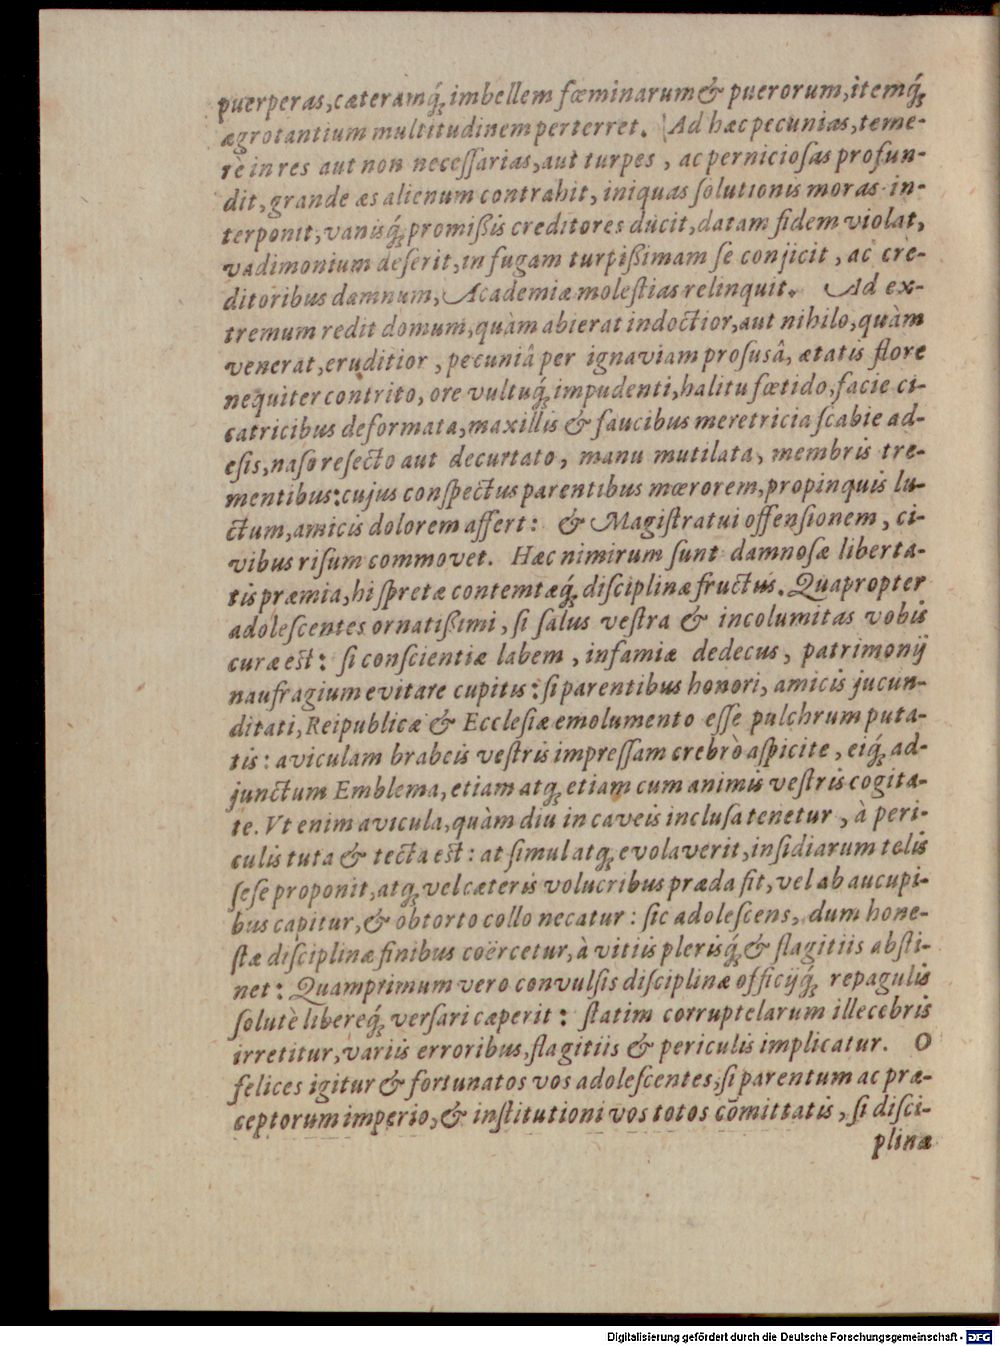 puerperas, cæteramq́; imbellem fœminarum & puerorum, itemq́;
ægrotantium multitudinem perterret. Ad hæc pecunias, teme-
rè in res aut non necessarias, aut turpes, ac perniciosas profun-
dit, grande æs alienum contrahit, iniquas solutionis moras in-
terponit, vanisq́; promißis creditores ducit, datam fidem violat,
vadimonium deserit, in fugam turpißimam se conjicit, ac cre-
ditoribus damnum, Academiæ molestias relinquit. Ad ex-
tremum redit domum, quàm abierat indoctior, aut nihilo, quàm
venerat, eruditior, pecuniâ per ignaviam profusâ, ætatis flore
nequiter contrito, ore vultuq́; impudenti, halitu fœtido, facie ci-
catricibus deformata, maxillis & faucibus meretricia scabie ad-
esis, naso resecto aut decurtato, manu mutilata, membris tre-
mentibus: cujus conspectus parentibus mœrorem, propinquis lu-
ctum, amicis dolorem affert: & Magistratui offensionem, ci-
vibus risum commovet. Hæc nimirum sunt damnosæ liberta-
tis præmia, hi spretæ contemtæq́; disciplinæ fructus. Quapropter
adolescentes ornatißimi, si salus vestra & incolumitas vobis
curæ est: si conscientiæ labem, infamiæ dedecus, patrimonij
naufragium evitare cupitis: si parentibus honori, amicis jucun-
ditati, Reipublicæ & Ecclesiæ emolumento esse pulchrum puta-
tis: aviculam brabeis vestris impressam crebrò aspicite, eiq́; ad-
junctum Emblema, etiam atq; etiam cum animis vestris cogita-
te. Vt enim avicula, quàm diu in caveis inclusa tenetur, à peri-
culis tuta & tecta est: at simul atq; evolaverit, insidiarum telis
sese proponit, atq; vel cæteris volucribus præda fit, vel ab aucupi-
bus capitur, & obtorto collo necatur: sic adolescens, dum hone-
stæ disciplinæ finibus coërcetur, à vitiis plerisq́; & flagitiis absti-
net: Quamprimum vero convulsis disciplinæ officijq́; repagulis
solutè libereq́; versari cæperit: statim corruptelarum illecebris
irretitur, variis erroribus, flagitiis & periculis implicatur. O
felices igitur & fortunatos vos adolescentes, si parentum ac præ-
ceptorum imperio, & institutioni vos totos cōmittatis, si disci-
plinæ
Digitalisierung gefördert durch die Deutsche Forschungsgemeinschaft - DFG